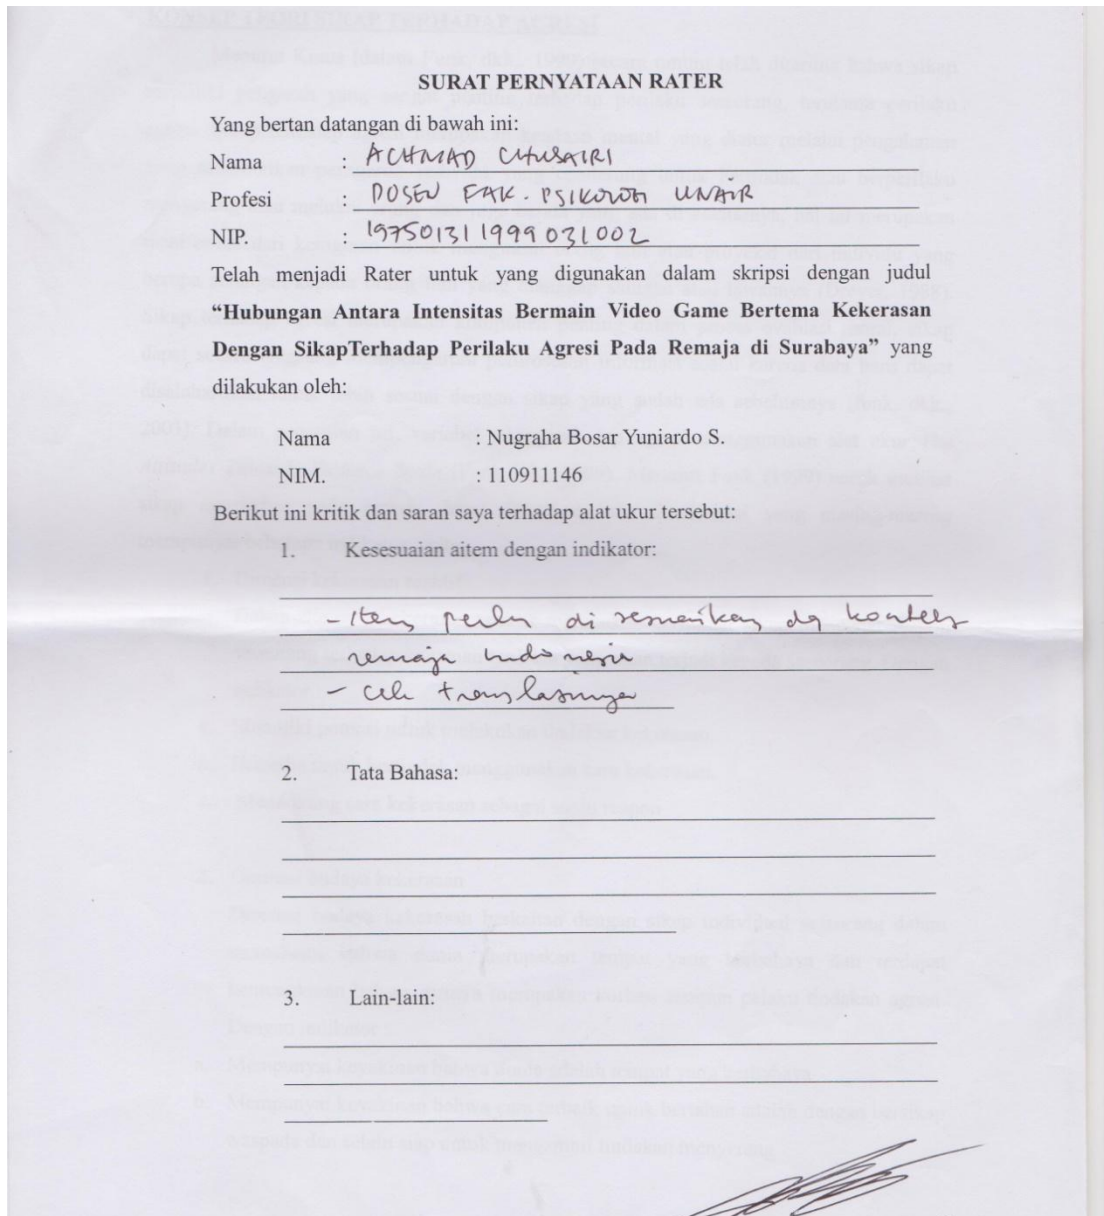 SURAT PERNYATAAN RATER
Yang bertan datangan di bawah ini:
Nama : ACHMAD CHUSAIRI
Profesi : DOSEN FAK. PSIKOLOGI UNAIR
NIP. : 197501311999031002
Telah menjadi Rater untuk yang digunakan dalam skripsi dengan judul
“Hubungan Antara Intensitas Bermain Video Game Bertema Kekerasan
Dengan SikapTerhadap Perilaku Agresi Pada Remaja di Surabaya” yang
dilakukan oleh:
Nama : Nugraha Bosar Yuniardo S.
NIM. : 110911146
Berikut ini kritik dan saran saya terhadap alat ukur tersebut:
1. Kesesuaian aitem dengan indikator:
- Item perlu di sesuaikan dg konteks
remaja Indonesia
- cek translasinya
2. Tata Bahasa:
3. Lain-lain: